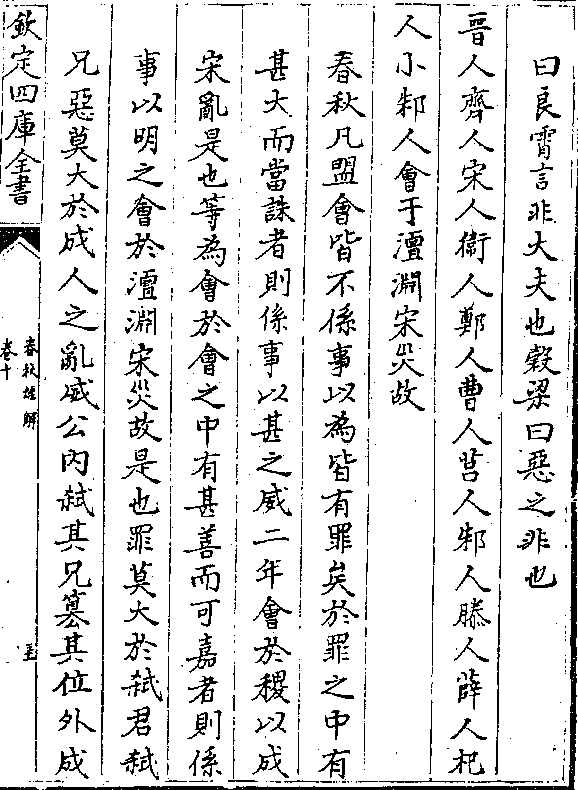 曰良霄言非大夫也穀梁曰惡之非也
晉人齊人宋人衞人鄭人曹人莒人邾人滕人薛人杞
人小邾人會于澶淵宋災故
春秋凡盟會皆不係事以為皆有罪矣於罪之中有
甚大而當誅者則係事以甚之威二年會於稷以成
宋亂是也等為會於會之中有甚善而可嘉者則係
事以明之會於澶淵宋災故是也罪莫大於弑君弑
兄惡莫大於成人之亂威公内弑其兄簒其位外成
欽定四庫全書
春秋經解
卷十